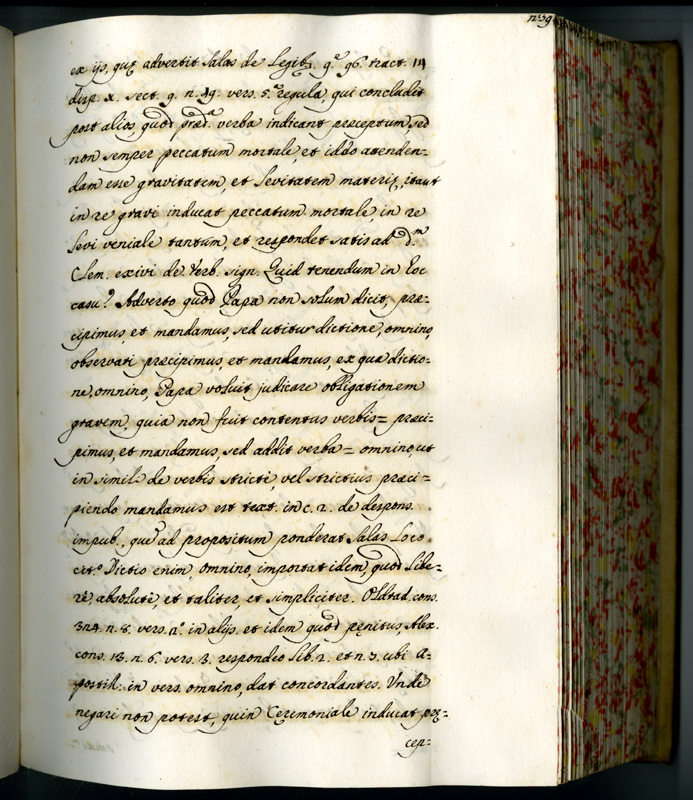 ex ijs, quę advertit Salas de Legib. q.e 96. tract. 14
disp. x. sect. 9. n. 49. vers. 5.a regula, qui concludit
post alios, quod præd.a verba indicant præceptum, sed
non semper peccatum mortale, et ideo attenden-
dam esse gravitatem, et levitatem materię, itaut
in re gravi inducat peccatum mortale, in re
levi veniale tantum, et respondet satis ad d.m
Clem. exivi de Verb. sign. Quid tenendum in hoc
casu? Adverto quod Papa non solum dicit, præ-
cipimus, et mandamus, sed utitur dictione, omnino,
observari præcipimus, et mandamus, ex qua dictio-
ne, omnino, Papa voluit judicare obligationem
gravem, quia non fuit contentus verbis= præci-
pimus, et mandamus, sed addit verba= omnino, ut
in simili de verbis stricte, vel strictius præci-
piendo mandamus est text. in c. 2. de despons.
impub., que ad propositum ponderat Salas Loco
cit.o Dictio enim, omnino, importat idem, quod libe-
rè, absolutè, et taliter, et simpliciter. Oldrad. cons.
n. 8. vers. in alijs, et idem quod pęnitus, Alex.
cons. 13. n. 6. vers. 3. respondeo lib. 2. et n. 3. ubi A-
postil: in vers. omnino, dat concordantes. Undè
negari non potest, quin Cęremoniale inducat pręҫ-
cep=